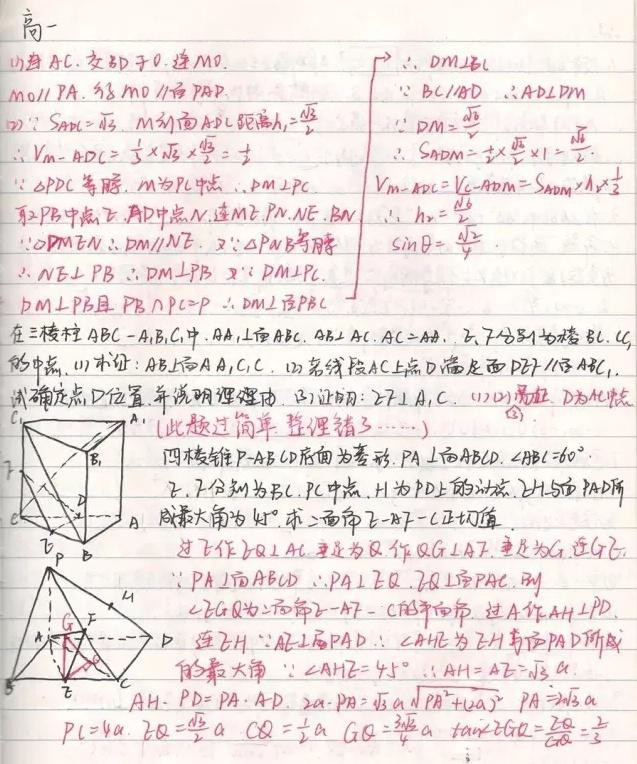 高一
(1)连AC.交BD于O.连MO.
MO//PA. 得MO//面PAD.
(2)∵ S△ADC=√3. M到面ADC距离h₁=√3/2
∴ V_{M-ADC}=1/3×√3×√3/2=1/2
∵ △PDC等腰. M为PC中点 ∴DM⊥PC.
取PB中点E. AD中点N.连ME.PN.NE.BN
∵▱DMEN ∴DM//NE. 又∵△PNB等腰
∴NE⊥PB ∴DM⊥PB 又∵DM⊥PC.
DM⊥PB且PB∩PC=P ∴DM⊥面PBC
∴ DM⊥BC
∵ BC//AD ∴AD⊥DM
∵ DM=√6/2
∴ S△ADM=1/2×√6/2×1=
V_{M-ADC}=V_{C-ADM}=S△ADM×h₂×1/3
∴ h₂=√6/2
sinθ=√2/4
在三棱柱ABC-A₁B₁C₁中.AA₁⊥面ABC.AB⊥AC.AC=AA₁. E.F分别为棱BC.CC₁
的中点.(1)求证:AB⊥面AA₁C₁C. (2)若线段AC上点D满足面DEF//面ABC₁.
试确定点D位置.并说明理由. (3)证明:EF⊥A₁C. (1)(2)易证. D为AC中点
(3)
(此题过简单.整理错了……)
四棱锥P-ABCD底面为菱形.PA⊥面ABCD.∠ABC=60°
E.F分别为BC.PC中点.H为PD上的动点.EH与面PAD所
成最大角为45°.求二面角E-AF-C正切值.
过E作EQ⊥AC.垂足为Q.作QG⊥AF.垂足为G.连GE.
∵PA⊥面ABCD ∴PA⊥EQ.EQ⊥面PAC.则
∠EGQ为二面角E-AF-C的平面角.过A作AH⊥PD.
连EH.∵AE⊥面PAD ∴∠AHE为EH与面PAD所成
的最大角 ∵∠AHE=45° ∴AH=AE=√3 a.
AH·PD=PA·AD. 2a·PA=√3 a√PA²+(2a)² PA=2√3 a
PC=4a. EQ=√3/2 a CQ=1/2 a GQ=3√3/4 a tan∠EGQ=EQ/GQ=2/3
C₁
A₁
B₁
F
D
C
A
E
B
P
H
G
F
A
D
Q
B
E
C